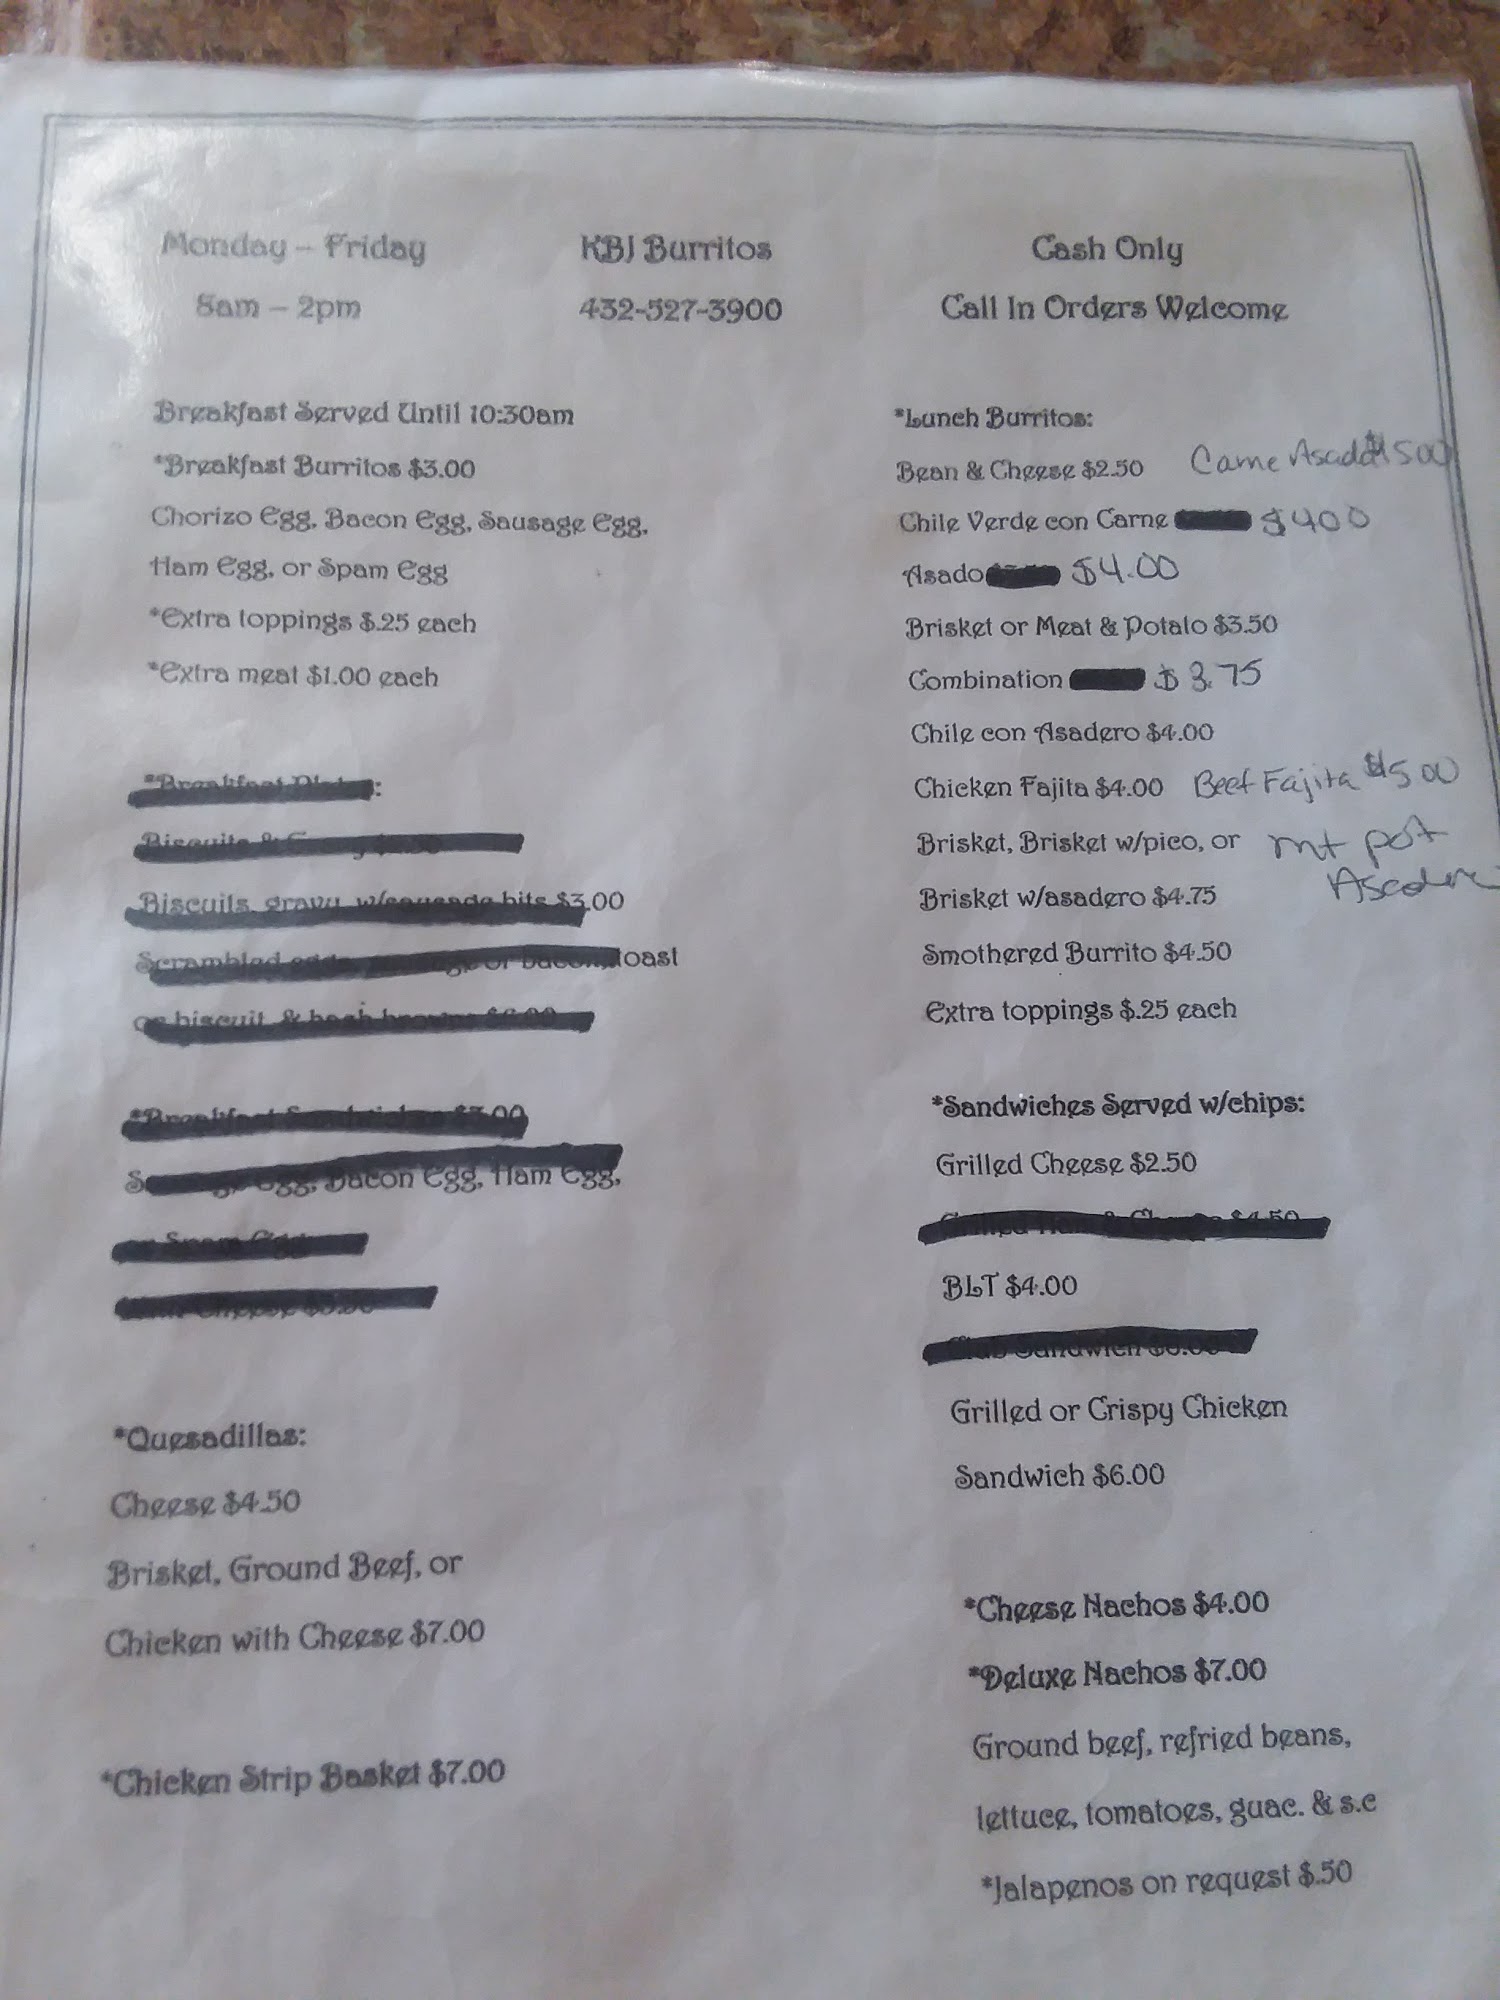 Monday – Friday KBJ Burritos Cash Only
8am – 2pm 432-527-3900 Call In Orders Welcome
Breakfast Served Until 10:30am
*Breakfast Burritos $3.00
Chorizo Egg, Bacon Egg, Sausage Egg,
Ham Egg, or Spam Egg
*Extra toppings $.25 each
*Extra meat $1.00 each
*Breakfast
Biscuits &
Biscuits, gravy, w/sausage bits $3.00
Scrambled or bacon, toast
or biscuit, & hash browns $6.00
*Breakfast Sandwiches $3.00
Egg, Bacon Egg, Ham Egg,
or Spam Egg
Cheese
*Quesadillas:
Cheese $4.50
Brisket, Ground Beef, or
Chicken with Cheese $7.00
*Chicken Strip Basket $7.00
*Lunch Burritos:
Bean & Cheese $2.50 Carne Asada $5 00
Chile Verde con Carne $400
Asado $4.00
Brisket or Meat & Potato $3.50
Combination $3.75
Chile con Asadero $4.00
Chicken Fajita $4.00 Beef Fajita $5 00
Brisket, Brisket w/pico, or mt pot
Brisket w/asadero $4.75
Smothered Burrito $4.50
Extra toppings $.25 each
*Sandwiches Served w/chips:
Grilled Cheese $2.50
Grilled Ham & Cheese $4.50
BLT $4.00
Club Sandwich
Grilled or Crispy Chicken
Sandwich $6.00
*Cheese Nachos $4.00
*Deluxe Nachos $7.00
Ground beef, refried beans,
lettuce, tomatoes, guac. & s.c
*Jalapenos on request $.50